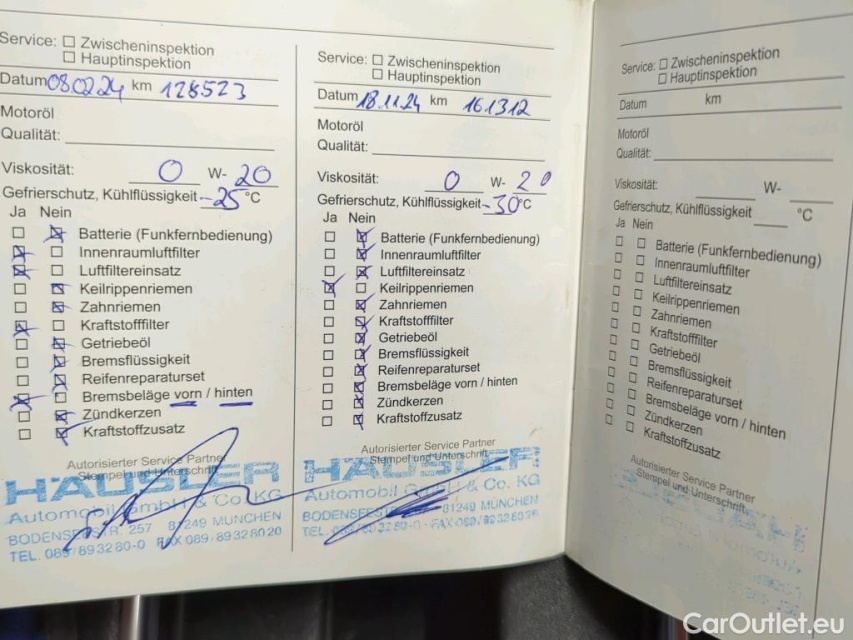 Service: Zwischeninspektion
Hauptinspektion
Datum 08.02.24 km 128523
Motoröl
Qualität:
Viskosität: 0 W- 20
Gefrierschutz, Kühlflüssigkeit -25 °C
Ja Nein
Batterie (Funkfernbedienung)
Innenraumluftfilter
Luftfiltereinsatz
Keilrippenriemen
Zahnriemen
Kraftstofffilter
Getriebeöl
Bremsflüssigkeit
Reifenreparaturset
Bremsbeläge vorn / hinten
Zündkerzen
Kraftstoffzusatz
Autorisierter Service Partner
Stempel und Unterschrift
HÄUSLER
Automobil GmbH & Co. KG
BODENSEESTR. 257 81249 MÜNCHEN
TEL. 089/89 32 80-0 FAX 089/89 32 80 20
Service: Zwischeninspektion
Hauptinspektion
Datum 18.11.24 km 161312
Motoröl
Qualität:
Viskosität: 0 W- 20
Gefrierschutz, Kühlflüssigkeit -30 °C
Ja Nein
Batterie (Funkfernbedienung)
Innenraumluftfilter
Luftfiltereinsatz
Keilrippenriemen
Zahnriemen
Kraftstofffilter
Getriebeöl
Bremsflüssigkeit
Reifenreparaturset
Bremsbeläge vorn / hinten
Zündkerzen
Kraftstoffzusatz
Autorisierter Service Partner
Stempel und Unterschrift
HÄUSLER
Automobil GmbH & Co. KG
81249 MÜNCHEN
Service: Zwischeninspektion
Hauptinspektion
Datum km
Motoröl
Qualität:
Viskosität: W-
Gefrierschutz, Kühlflüssigkeit °C
Ja Nein
Batterie (Funkfernbedienung)
Innenraumluftfilter
Luftfiltereinsatz
Keilrippenriemen
Zahnriemen
Kraftstofffilter
Getriebeöl
Bremsflüssigkeit
Reifenreparaturset
Bremsbeläge vorn / hinten
Zündkerzen
Kraftstoffzusatz
Autorisierter Service Partner
Stempel und Unterschrift
CarOutlet.eu